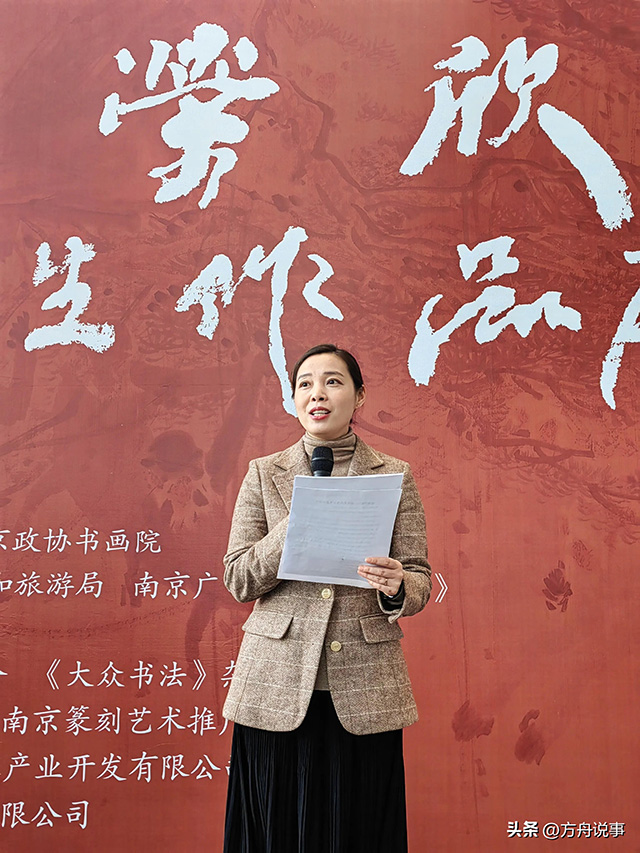 勞 欣
生 作 品
京政协书画院
和旅游局 南京广 》
《大众书法》杂
南京篆刻艺术推
产业开发有限公
限公司
头条 @方舟说事